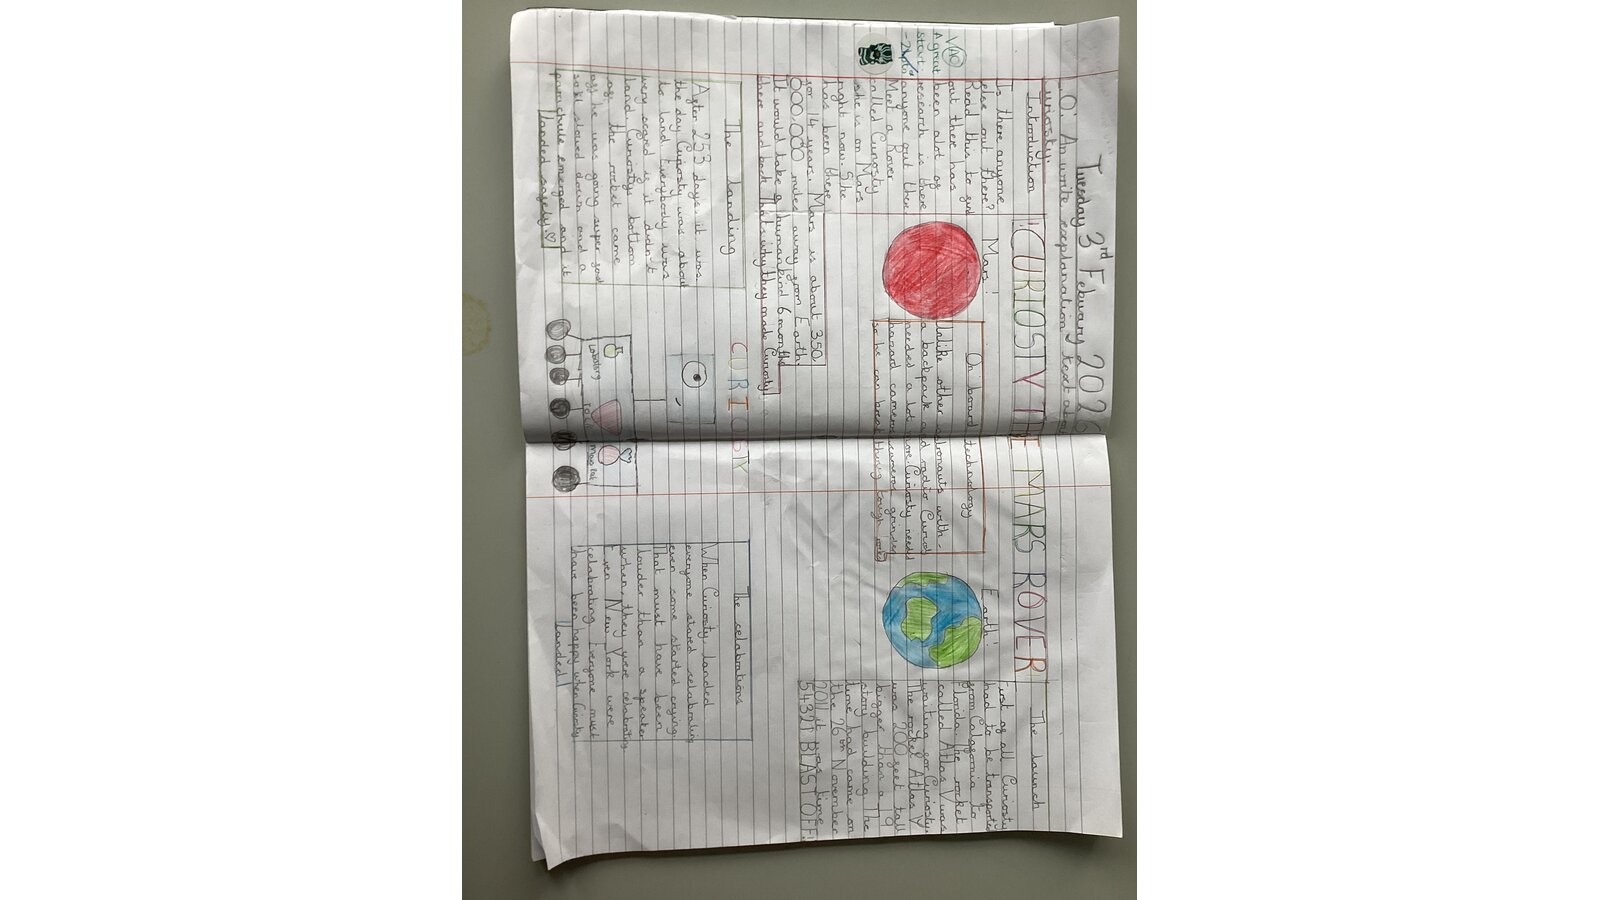 Tuesday 3rd Febuary 2026
L.O: An write explanation text about
curiosty.
!CURIOSTY THE MARS ROVER
Introduction
Is there anyone
else out there?
Read this to find
out there has
been alot of
research is there
anyone out there
Meet a Rover
called Curiosty
she is on Mars
right now. She
has been there
for 14 years. Mars is about 350,
000,000 miles away from Earth.
It would take a humankind 6 months
there and back That's why they made Curiosty
V AO
A great
start
Mars!
On board technology
Unlike other astronauts with-
a backpack and radio Curios
needed a lot more Curiosty needs
hazard cameras, cameras grinder
so he can break through tough rocks
Earth.
The launch
First of all Curiosty
had to be transported
from Calgfornia to
Florida. The rocket
called Atlas V was
waiting for Curiosty
The rocket Atlas V
was 200 feet tall
bigger than a 19
story building The
time had come on
the 26 on November
2011 it was time
54321 BLAST OFF!
The landing
After 253 days, it was
the day Curiosty was about
to land Everybody was
very scared if it didn't
land. Curiosty bottom
as the rocket came
off he was going super fast
so it slowed down and a
parachute emerged and it
landed safely.♡
CURIOSITY
Labotory
Mast
The celabrations
When Curiosty, landed
everyone stared celabrating
even some started crying.
That must have been
louder than a speaker
when, they were celabrating
Even New York were
celabrating. Everyone must
have been happy when Curiosty
landed!